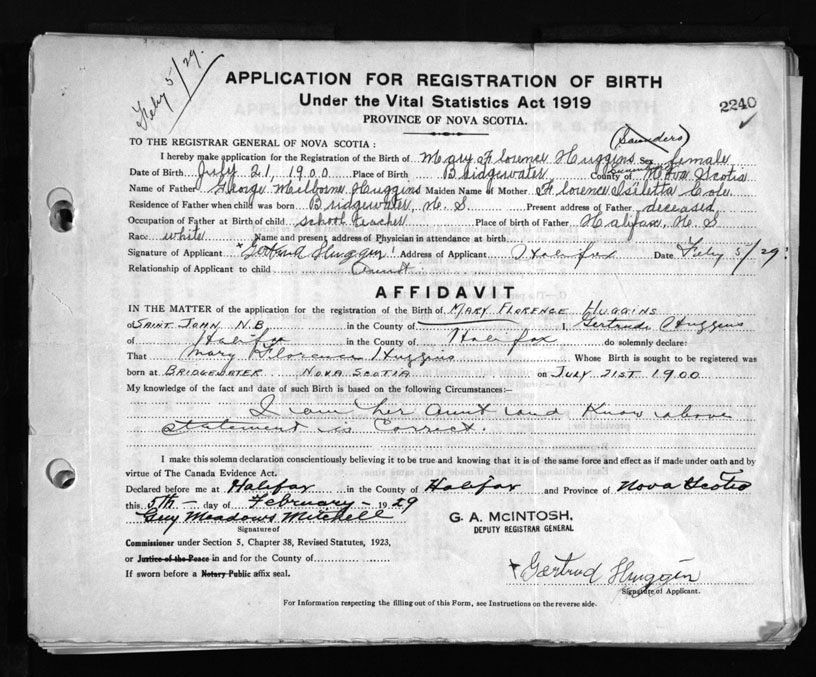 Feby 5/29.
APPLICATION FOR REGISTRATION OF BIRTH
Under the Vital Statistics Act 1919
2240
PROVINCE OF NOVA SCOTIA.
(Saunders)
TO THE REGISTRAR GENERAL OF NOVA SCOTIA:
I hereby make application for the Registration of the Birth of Mary Florence Huggins Sex female
Date of Birth July 21, 1900 Place of Birth Bridgewater County of Nova Scotia
Name of Father George Melborne Huggins Maiden Name of Mother Florence Isiletta Cole
Residence of Father when child was born Bridgewater, N. S Present address of Father deceased
Occupation of Father at Birth of child school teacher Place of birth of Father Halifax, N. S
Race white Name and present address of Physician in attendance at birth
Signature of Applicant x Gertrud Huggin Address of Applicant Halifax Date Feby 5/29.
Relationship of Applicant to child Aunt.
AFFIDAVIT
IN THE MATTER of the application for the registration of the Birth of MARY FLORENCE HUGGINS
of SAINT JOHN N.B. in the County of I, Gertrude Huggins
of Halifax in the County of Halifax do solemnly declare:
That Mary Florence Huggins Whose Birth is sought to be registered was
born at BRIDGEWATER NOVA SCOTIA on JULY 21ST 1900
My knowledge of the fact and date of such Birth is based on the following Circumstances:—
I am her Aunt and Know above
statement is Correct.
I make this solemn declaration conscientiously believing it to be true and knowing that it is of the same force and effect as if made under oath and by
virtue of The Canada Evidence Act.
Declared before me at Halifax in the County of Halifax and Province of Nova Scotia
this 5th day of February 1929
Guy Meadows Mitchell
G. A. McINTOSH,
DEPUTY REGISTRAR GENERAL
Signature of
Commissioner under Section 5, Chapter 38, Revised Statutes, 1923,
or Justice of the Peace in and for the County of
If sworn before a Notary Public affix seal.
x Gertrud Huggin
Signature of Applicant.
For Information respecting the filling out of this Form, see Instructions on the reverse side.